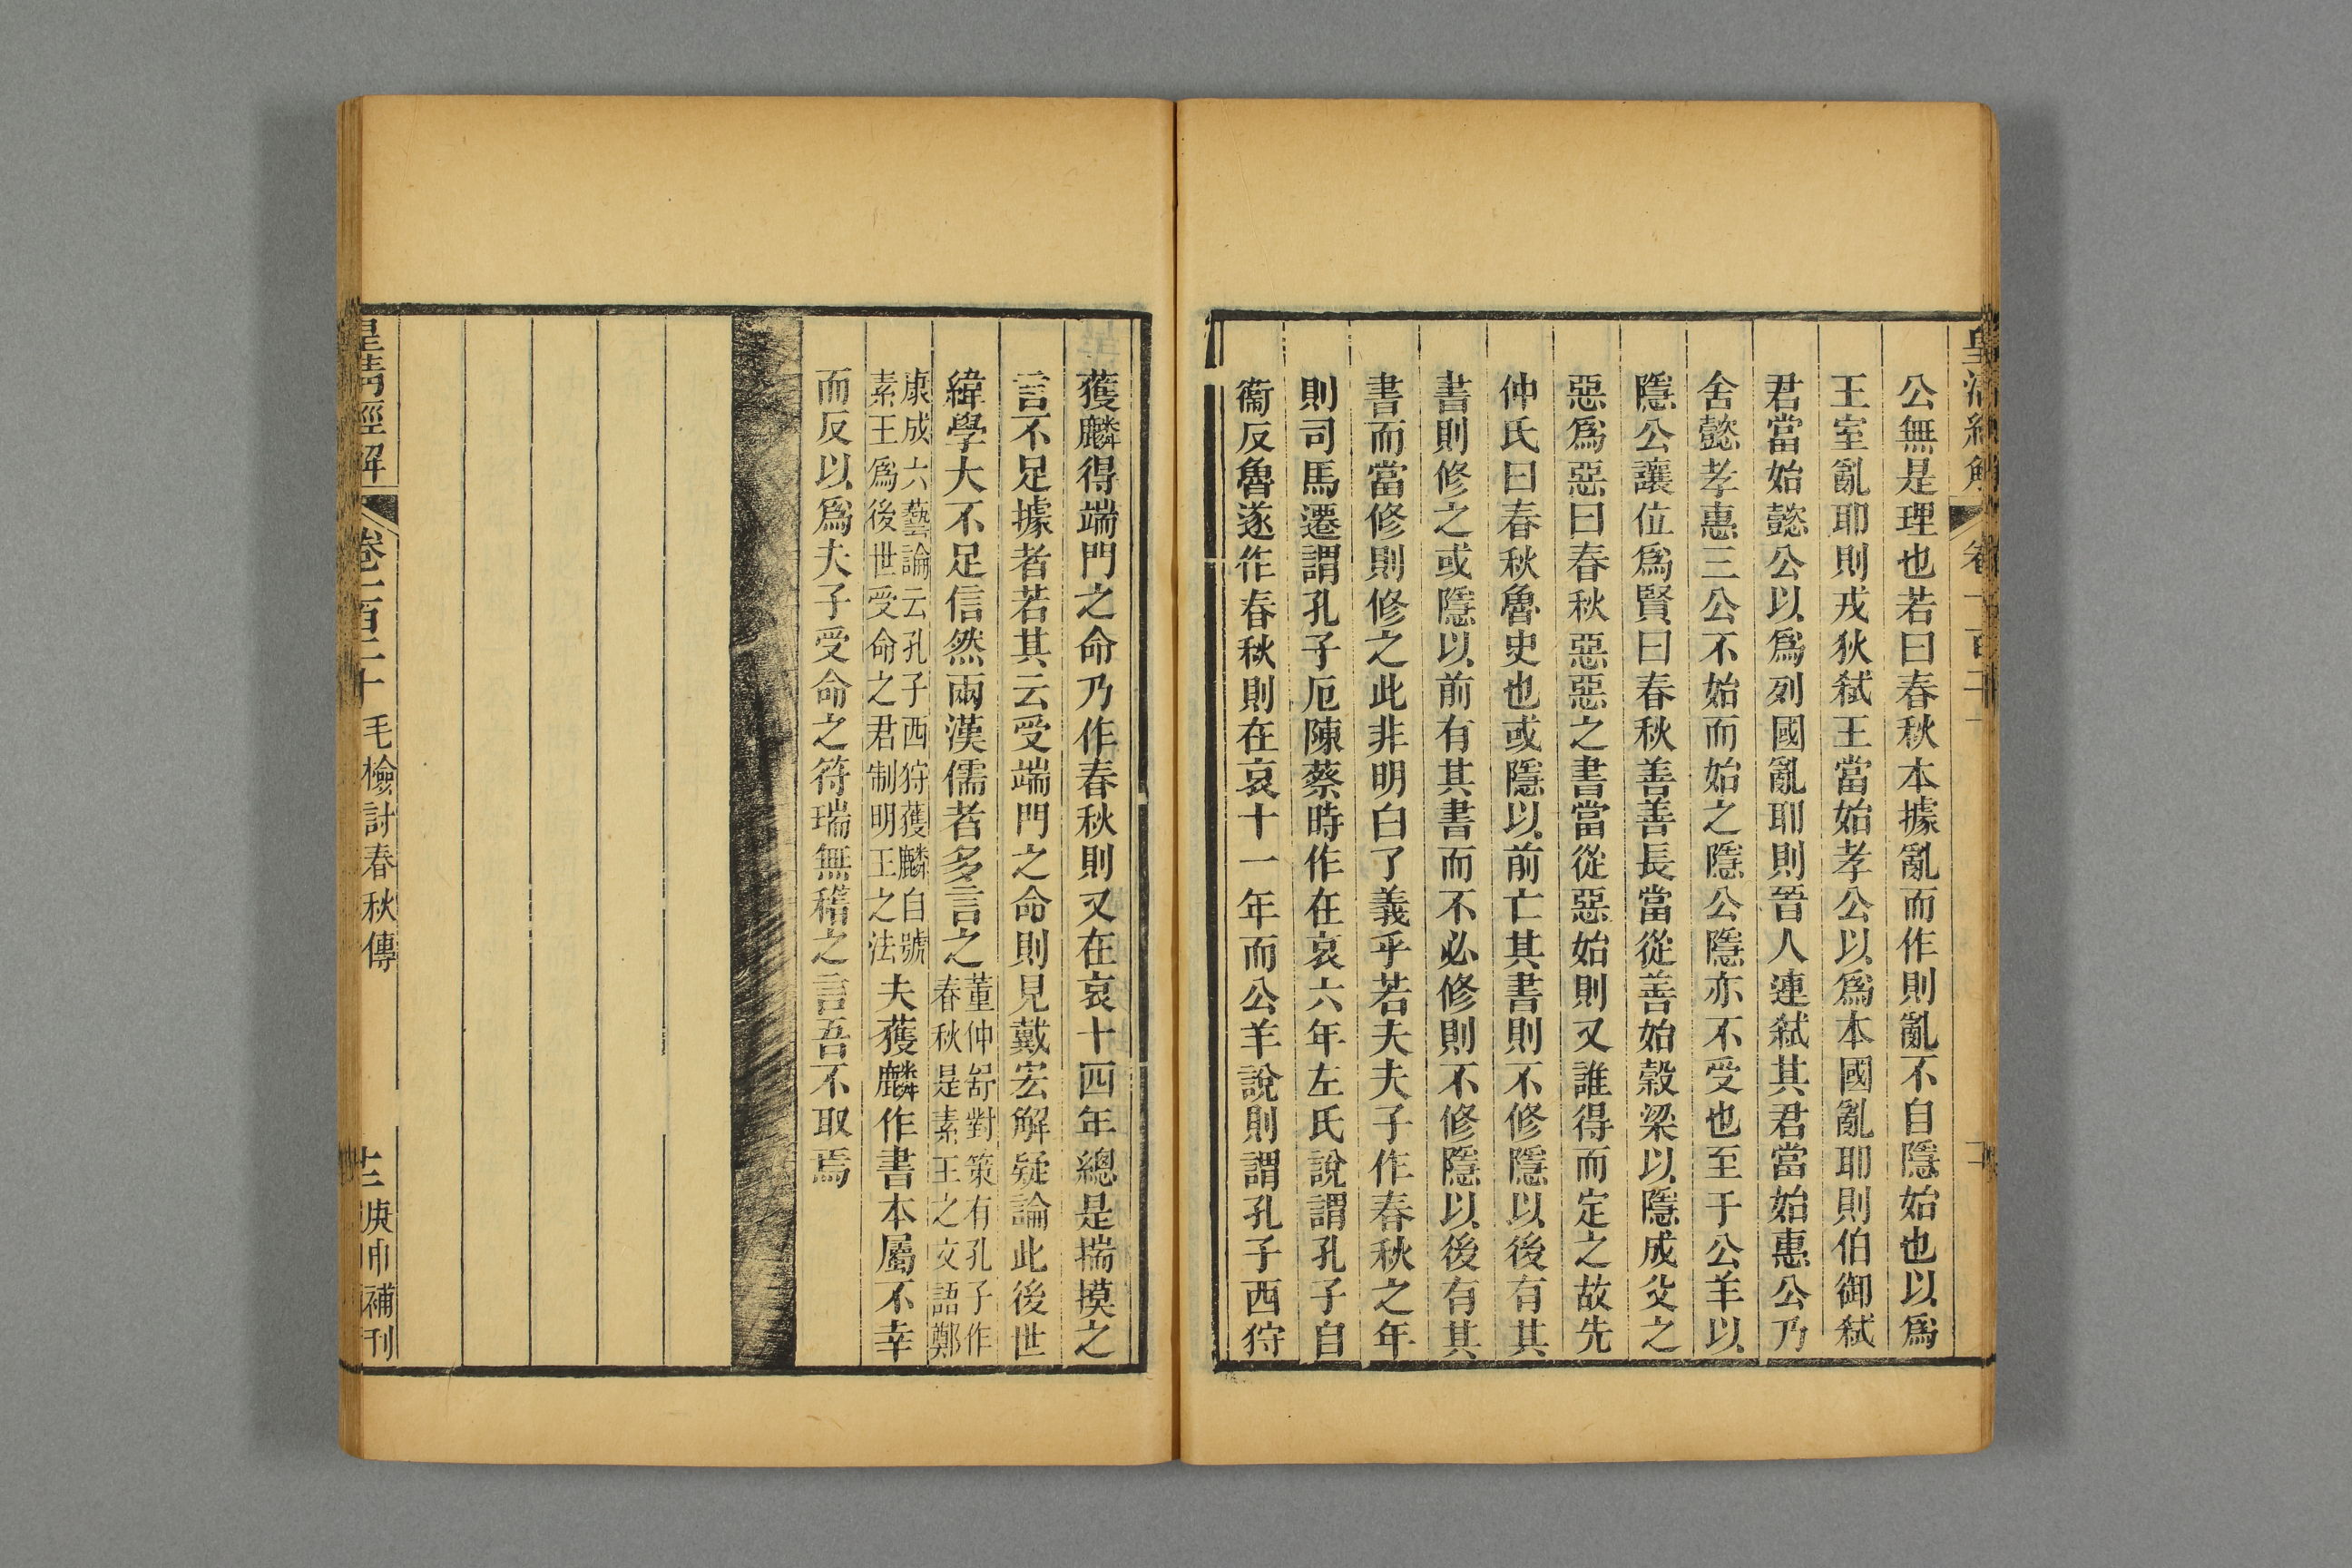 公無是理也若曰春秋本據亂而作則亂不自隱始也以爲
王室亂耶則戎狄弑王當始孝公以爲本國亂耶則伯御弑
君當始懿公以爲列國亂耶則晉人連弑其君當始惠公乃
舍懿孝惠三公不始而始之隱公隱亦不受也至于公羊以
隱公讓位爲賢曰春秋善善長當從善始穀梁以隱成父之
惡爲惡曰春秋惡惡之書當從惡始則又誰得而定之故先
仲氏曰春秋魯史也或隱以前亡其書則不修隱以後有其
書則修之或隱以前有其書而不必修則不修隱以後有其
書而當修則修之此非明白了義乎若夫夫子作春秋之年
則司馬遷謂孔子厄陳蔡時作在哀六年左氏說謂孔子自
衞反魯遂作春秋則在哀十一年而公羊說則謂孔子西狩
獲麟得端門之命乃作春秋則又在哀十四年總是揣摸之
言不足據者若其云受端門之命則見戴宏解疑論此後世
緯學大不足信然兩漢儒者多言之董仲舒對策有孔子作
春秋是素王之文語鄭
康成六藝論云孔子西狩獲麟自號
素王爲後世受命之君制明王之法夫獲麟作書本屬不幸
而反以爲夫子受命之符瑞無稽之言吾不取焉
皇清經解
卷一百二十
毛檢討春秋傳
庚申補刊